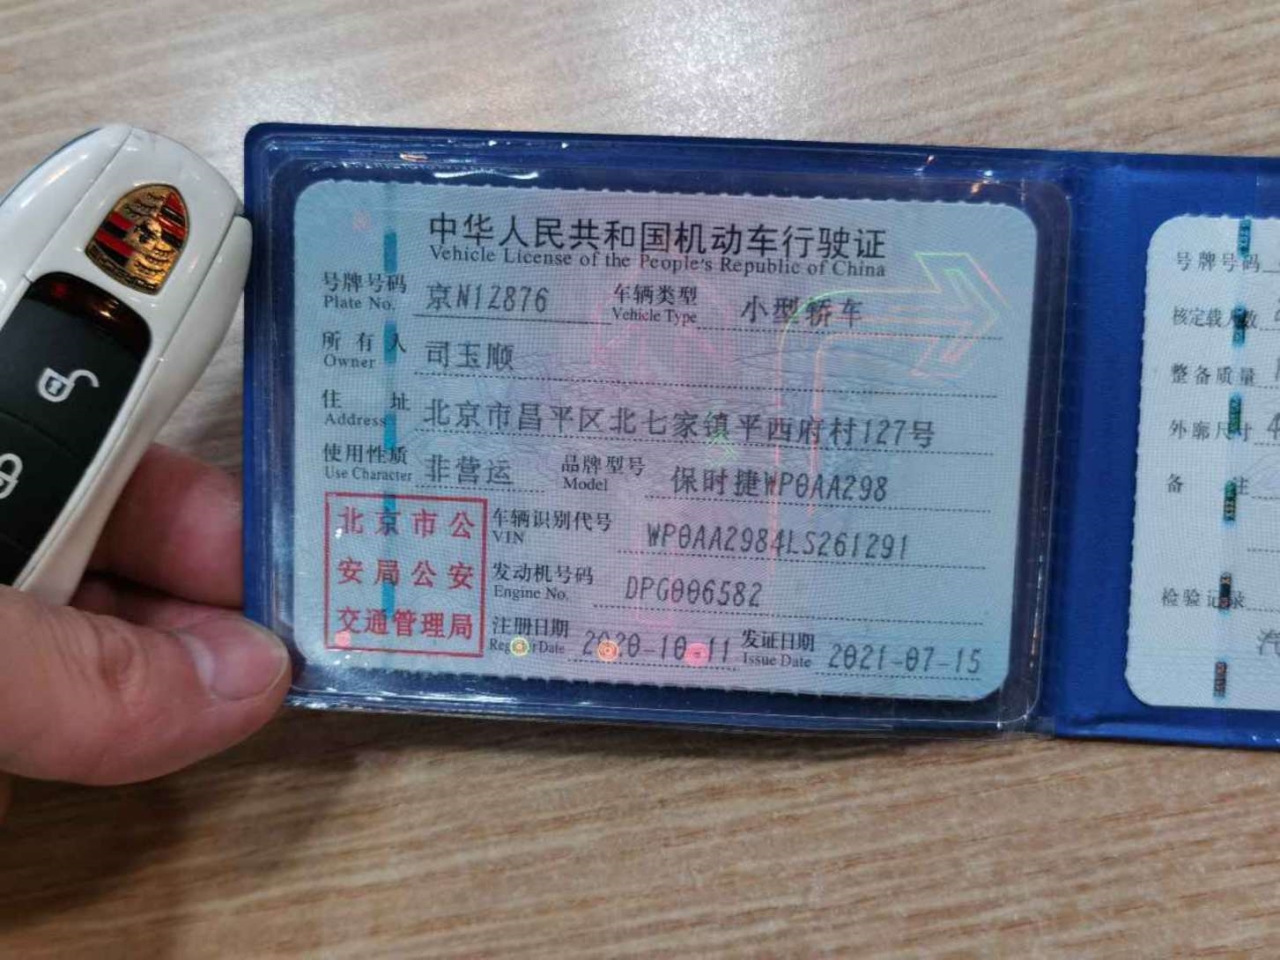 中华人民共和国机动车行驶证
Vehicle License of the People's Republic of China
号牌号码 京N1Z876 车辆类型 小型轿车
Plate No. Vehicle Type
所有人 司玉顺
Owner
住址 北京市昌平区北七家镇平西府村127号
Address
使用性质 非营运 品牌型号 保时捷WP0AA298
Use Character Model
北京市公
安局公安
交通管理局
车辆识别代号 WP0AA2984LS261291
VIN
发动机号码 DPG006582
Engine No.
注册日期 2020-10-11 发证日期 2021-07-15
Register Date Issue Date
号牌号码
核定载人数
整备质量
外廓尺寸 4
备注
检验记录